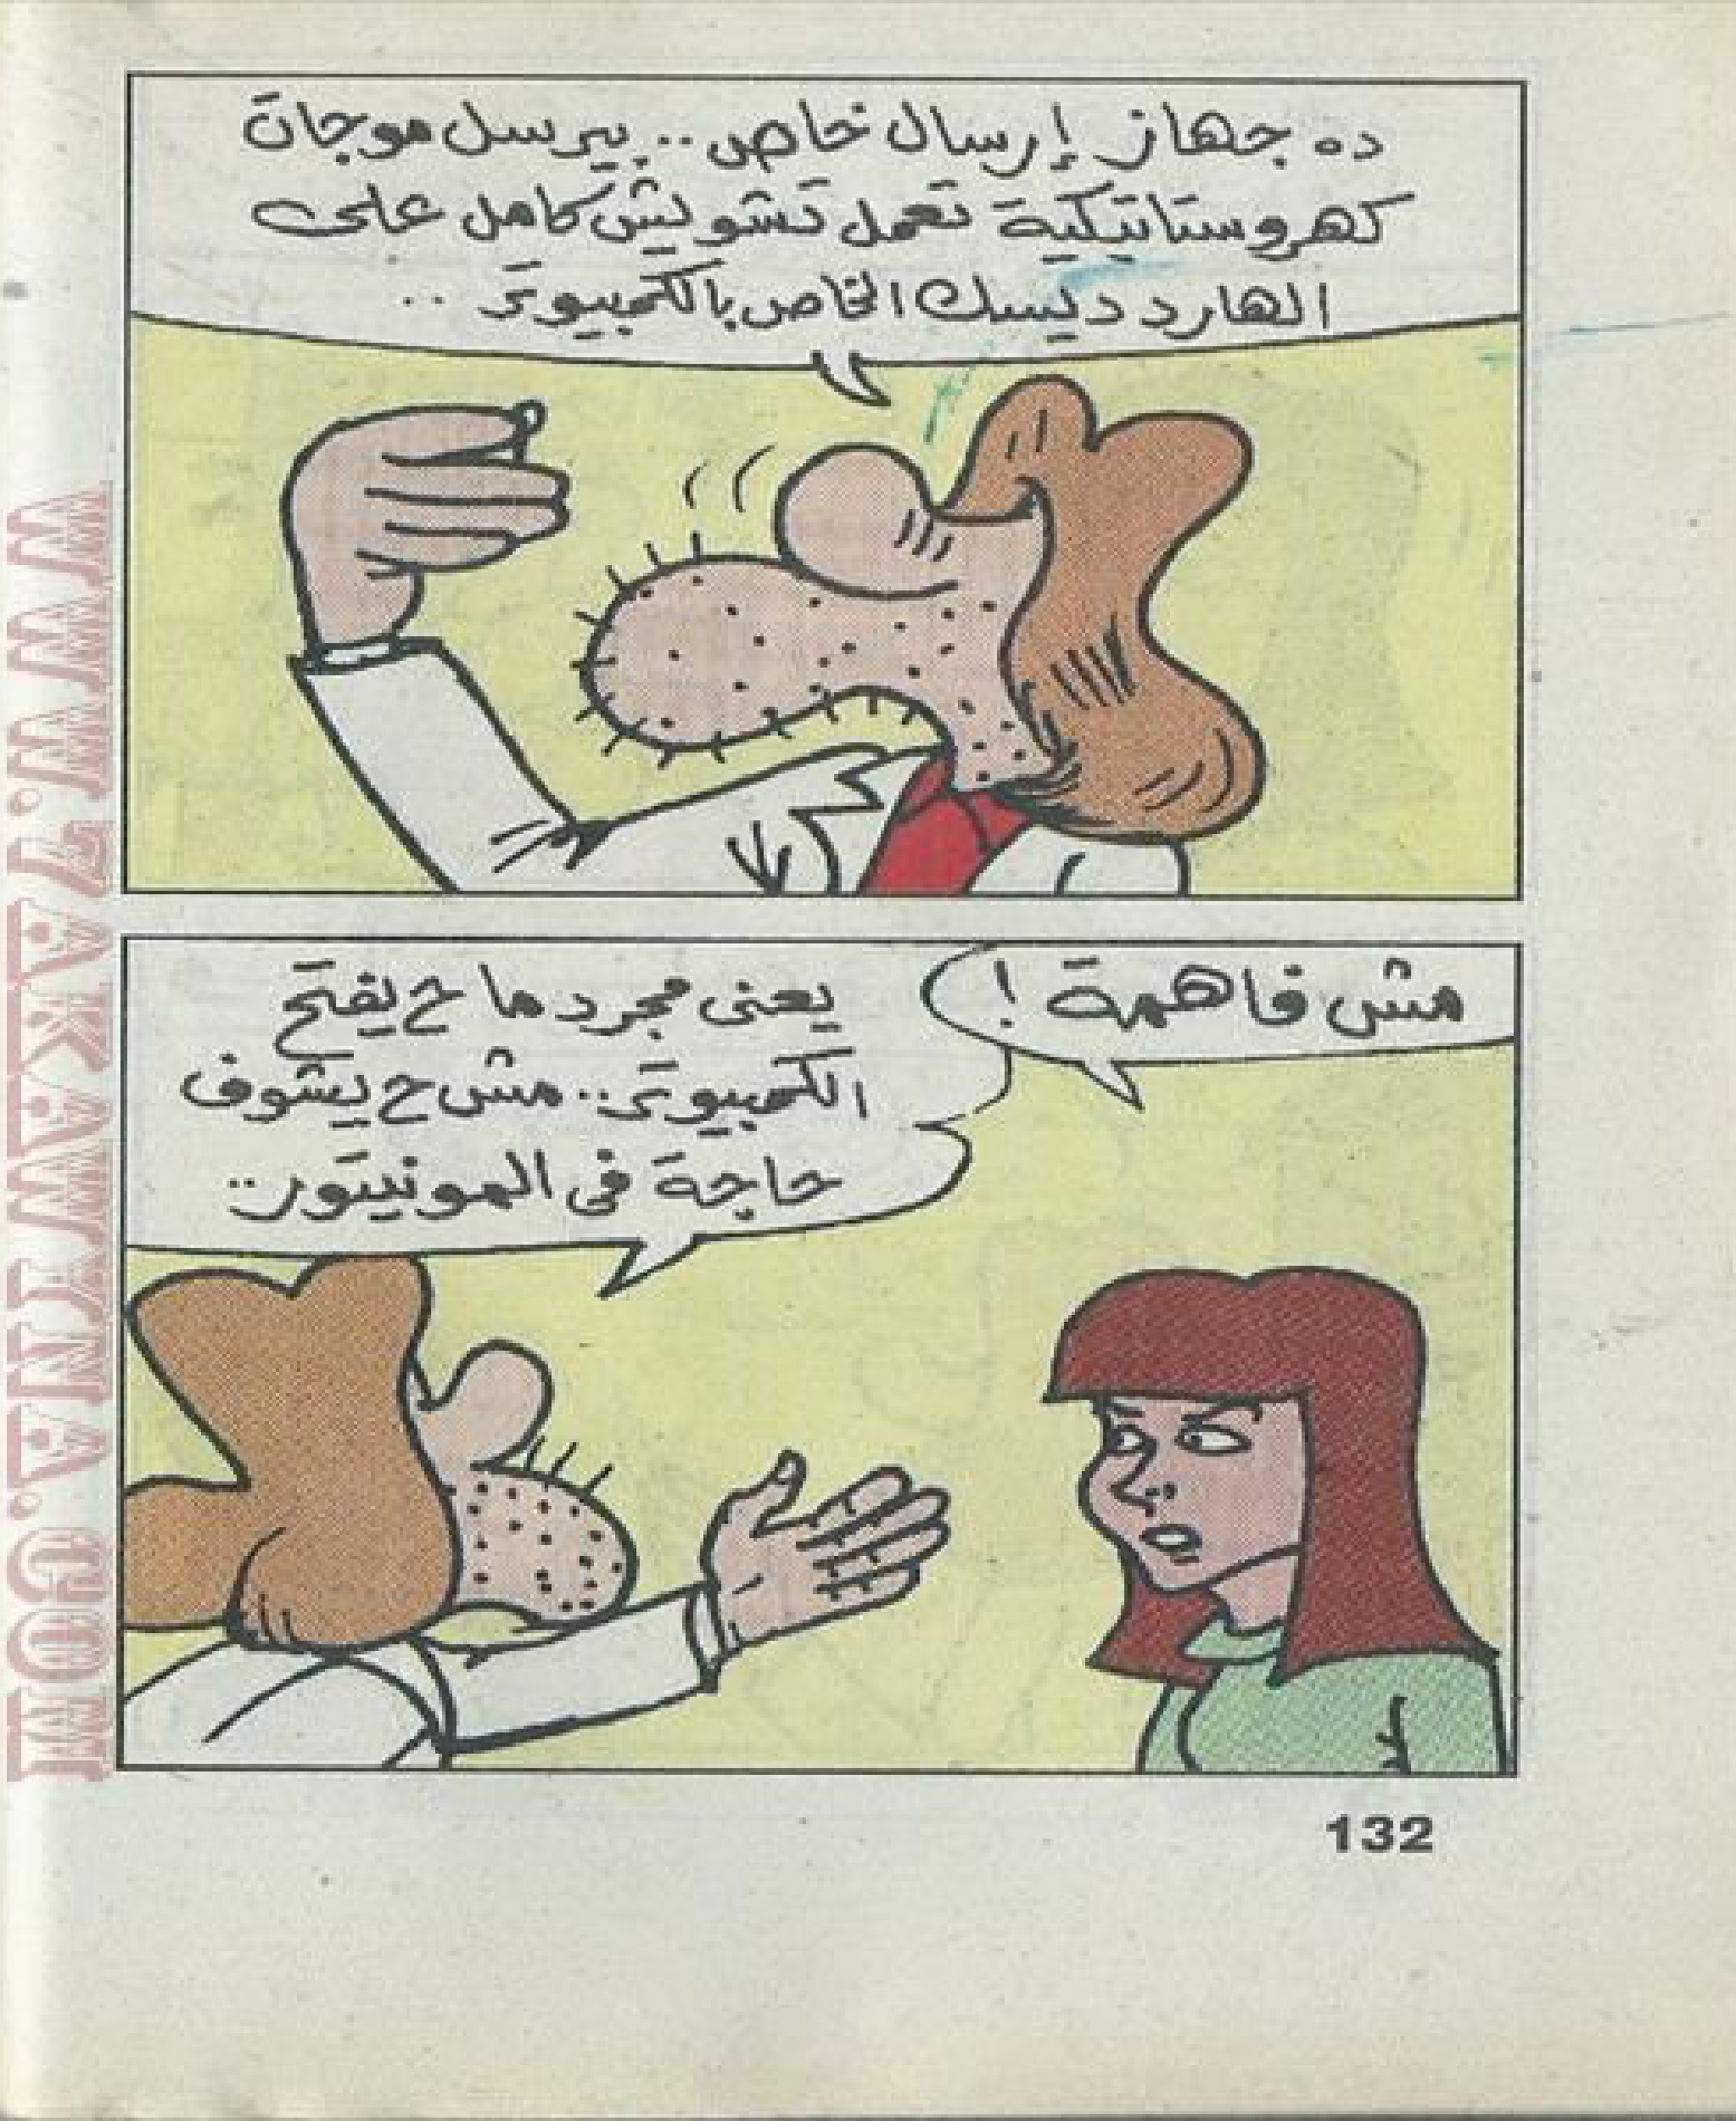 ده جهاز إرسال خاص .. بيرسل موجات
كهروستاتيكية تعمل تشويش كامل على
الهارد ديسك الخاص بالكمبيوتر ..
مش فاهمة !
يعنى مجرد ما ح يفتح
الكمبيوتر .. مش ح يشوف
حاجة فى المونيتور ..
132
WWW.7AKAWINA.COM